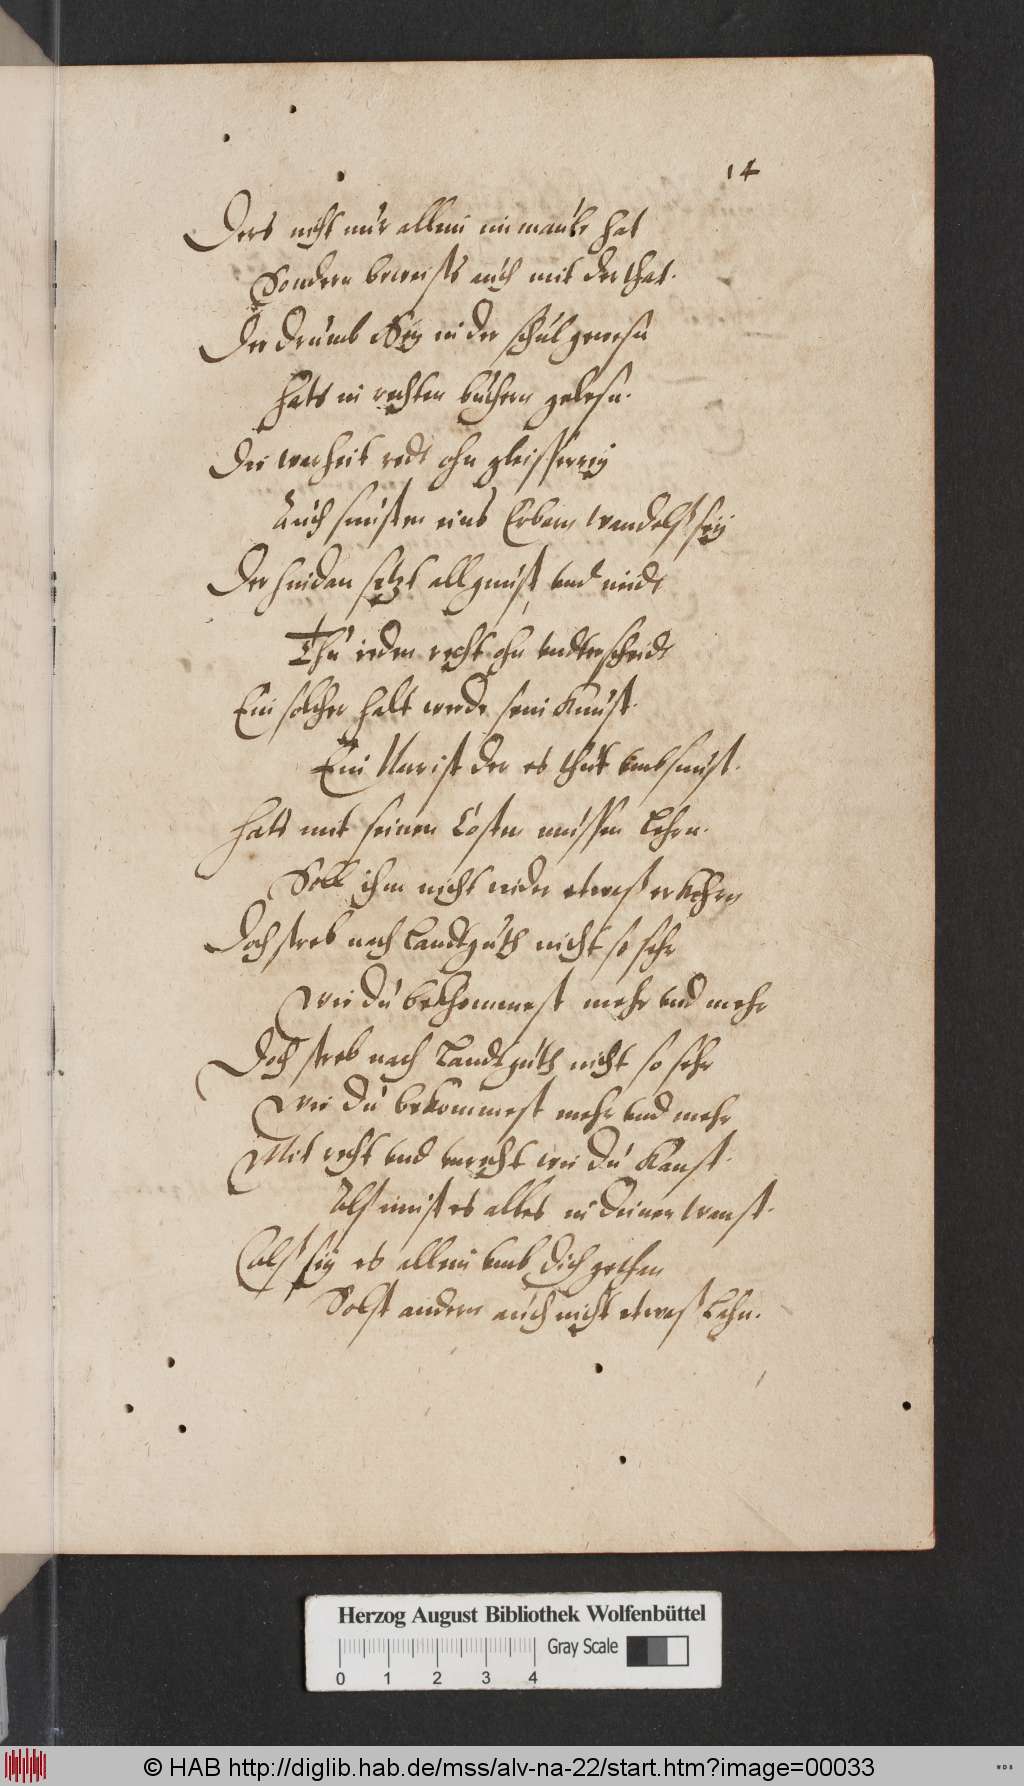 14
Ders nicht nur allein im maule hat
Sondern beweists auch mit der that.
Der drumb Sey in der schul gewesn
hats in rechten buchern gelesn.
Die warheit redt ohn gleissnerey
Auch sunsten eins Erbarn wandels sey
Der hindan setzt all gunst und neidt
Thu jeden recht ohn undterscheidt
Ein solcher halt werde sein Kunst.
Ein Narr ist der es thut umbsunst.
hats mit seinen Costen müssen Lehrn.
Soll ihm nicht wider etwas
Doch streb nach Landtguth nicht so sehr
wie du bekhommest mehr und mehr
Doch streb nach Landtguth nicht so sehr
wie du bekommest mehr und mehr
Mit recht und unrecht wie du Kanst.
Als es alles in deinen wanst.
Als sey es allein umb dich gethan
Solst andern auch nicht etwas Lahn.
Herzog August Bibliothek Wolfenbüttel
Gray Scale
0 1 2 3 4
© HAB http://diglib.hab.de/mss/alv-na-22/start.htm?image=00033